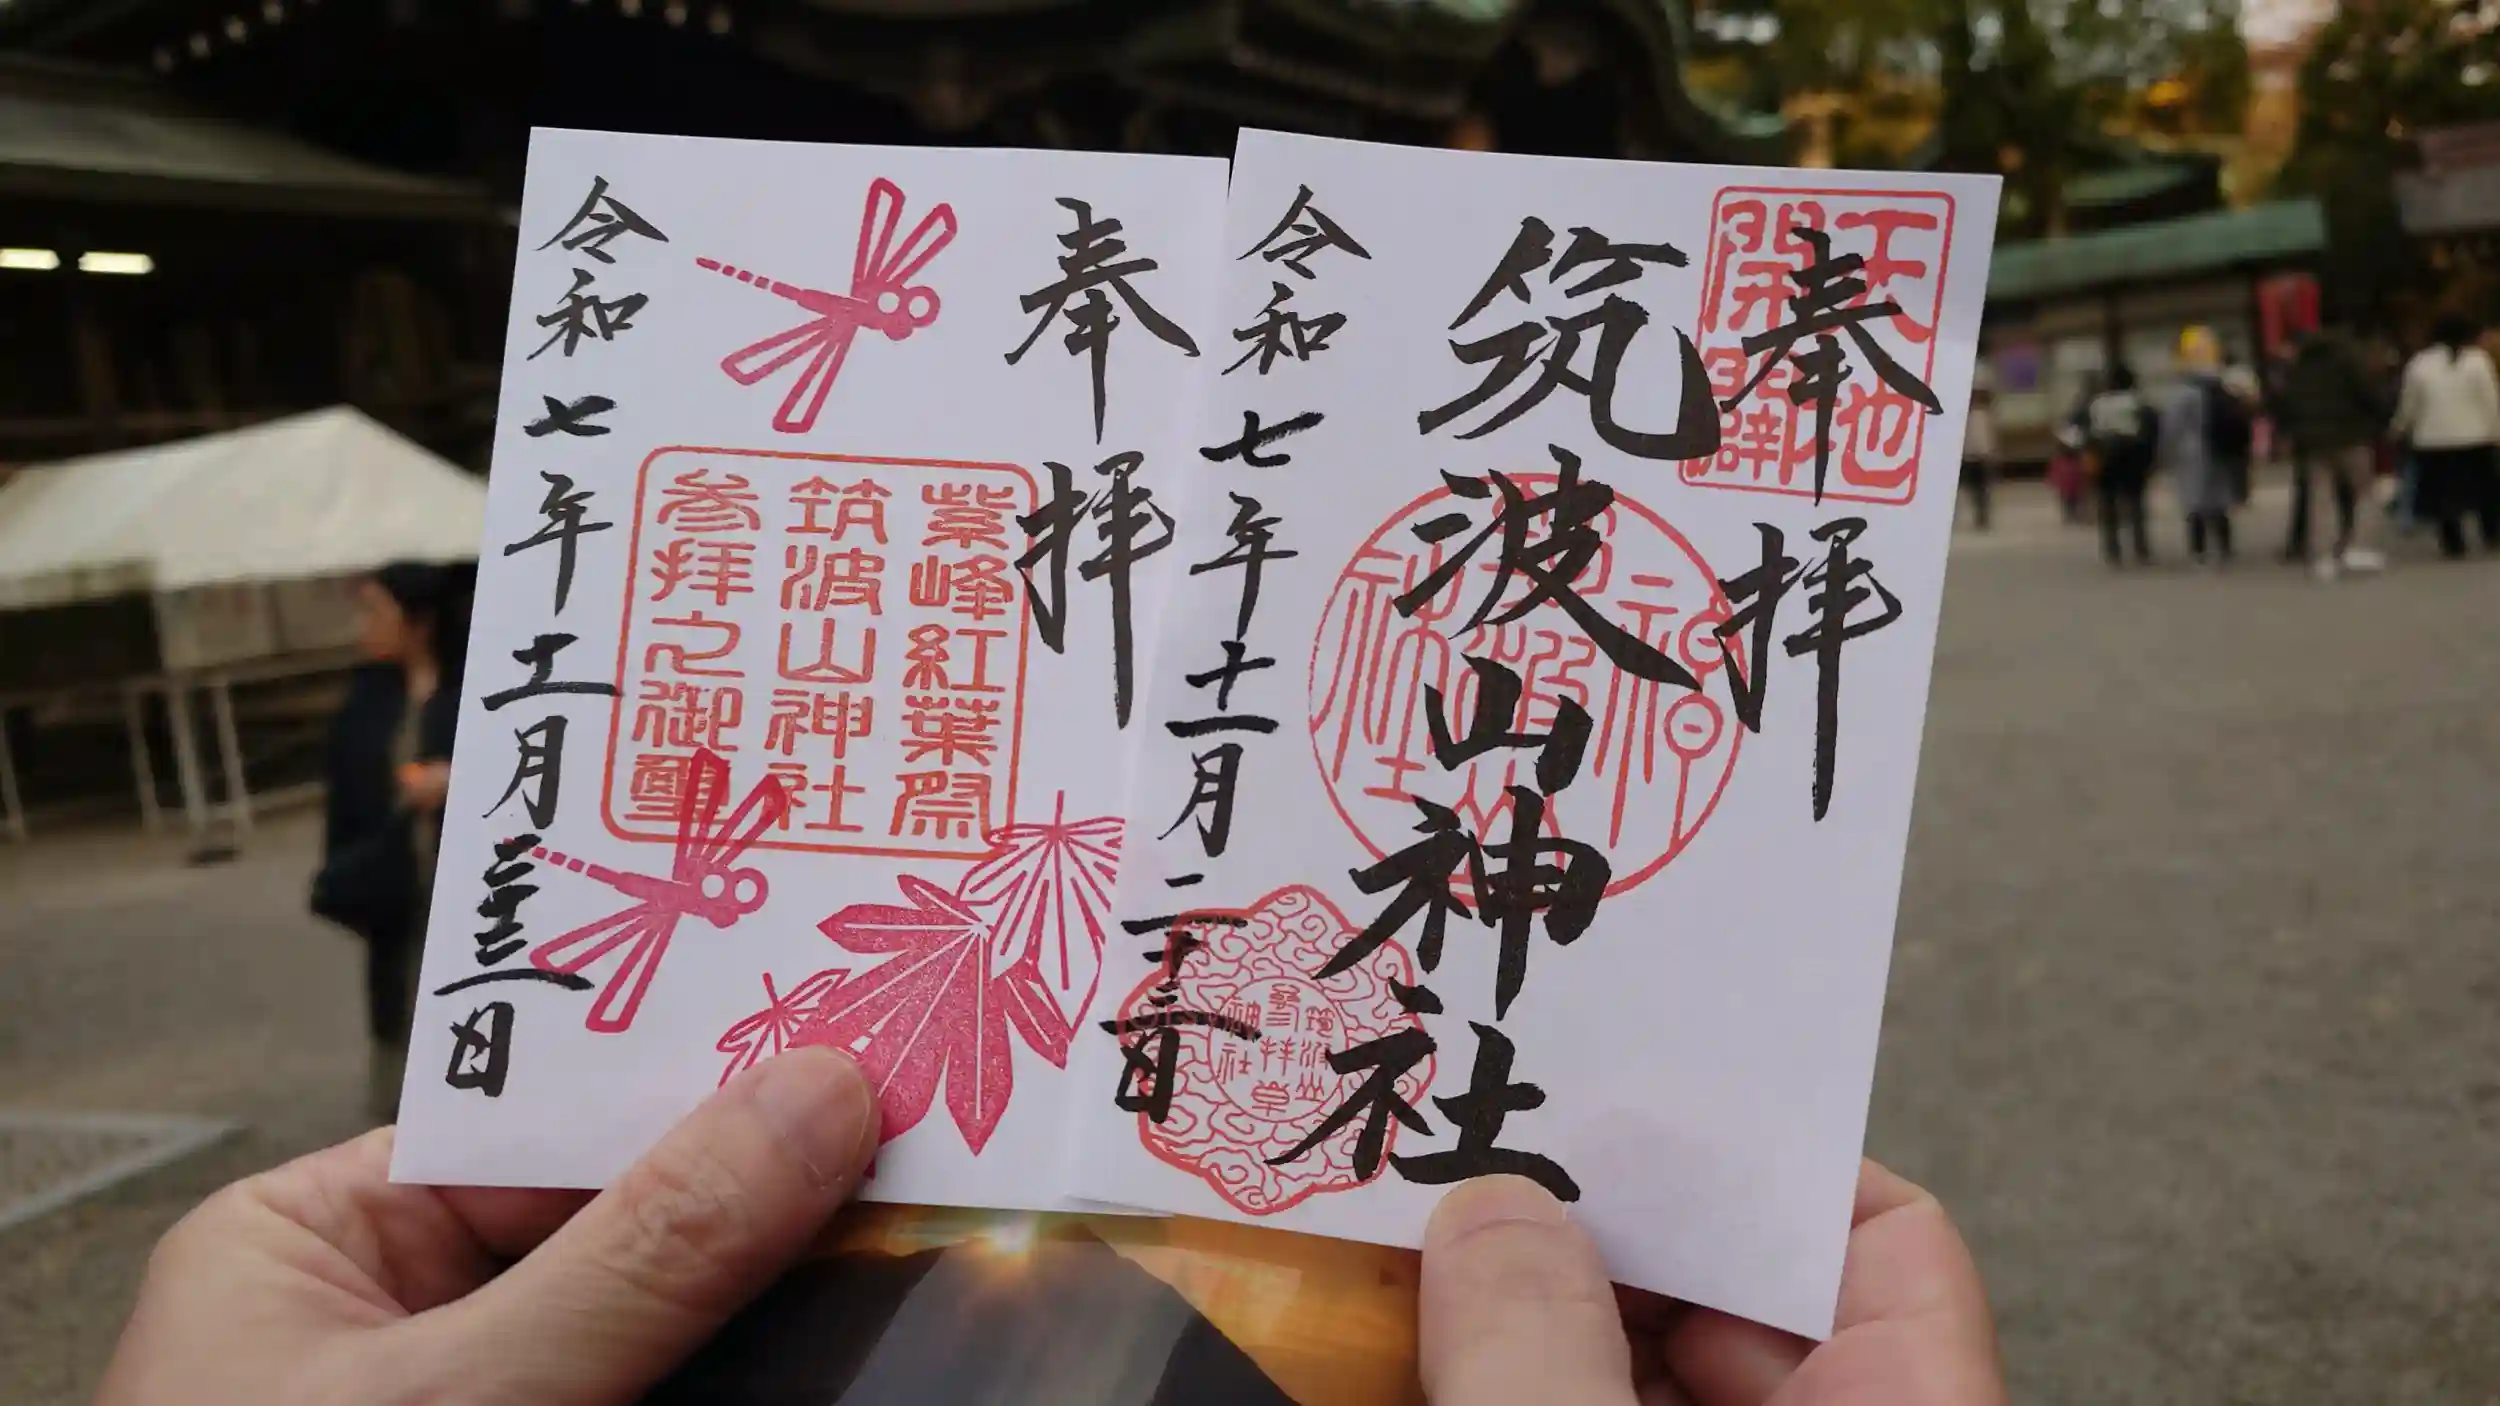 奉拝
紫峰紅葉祭
筑波山神社
参拝之御璽
令和七年十一月二十三日
天地
開闢
奉拝
筑波山神社
筑波山
参拝章
神社
令和七年十一月二十三日